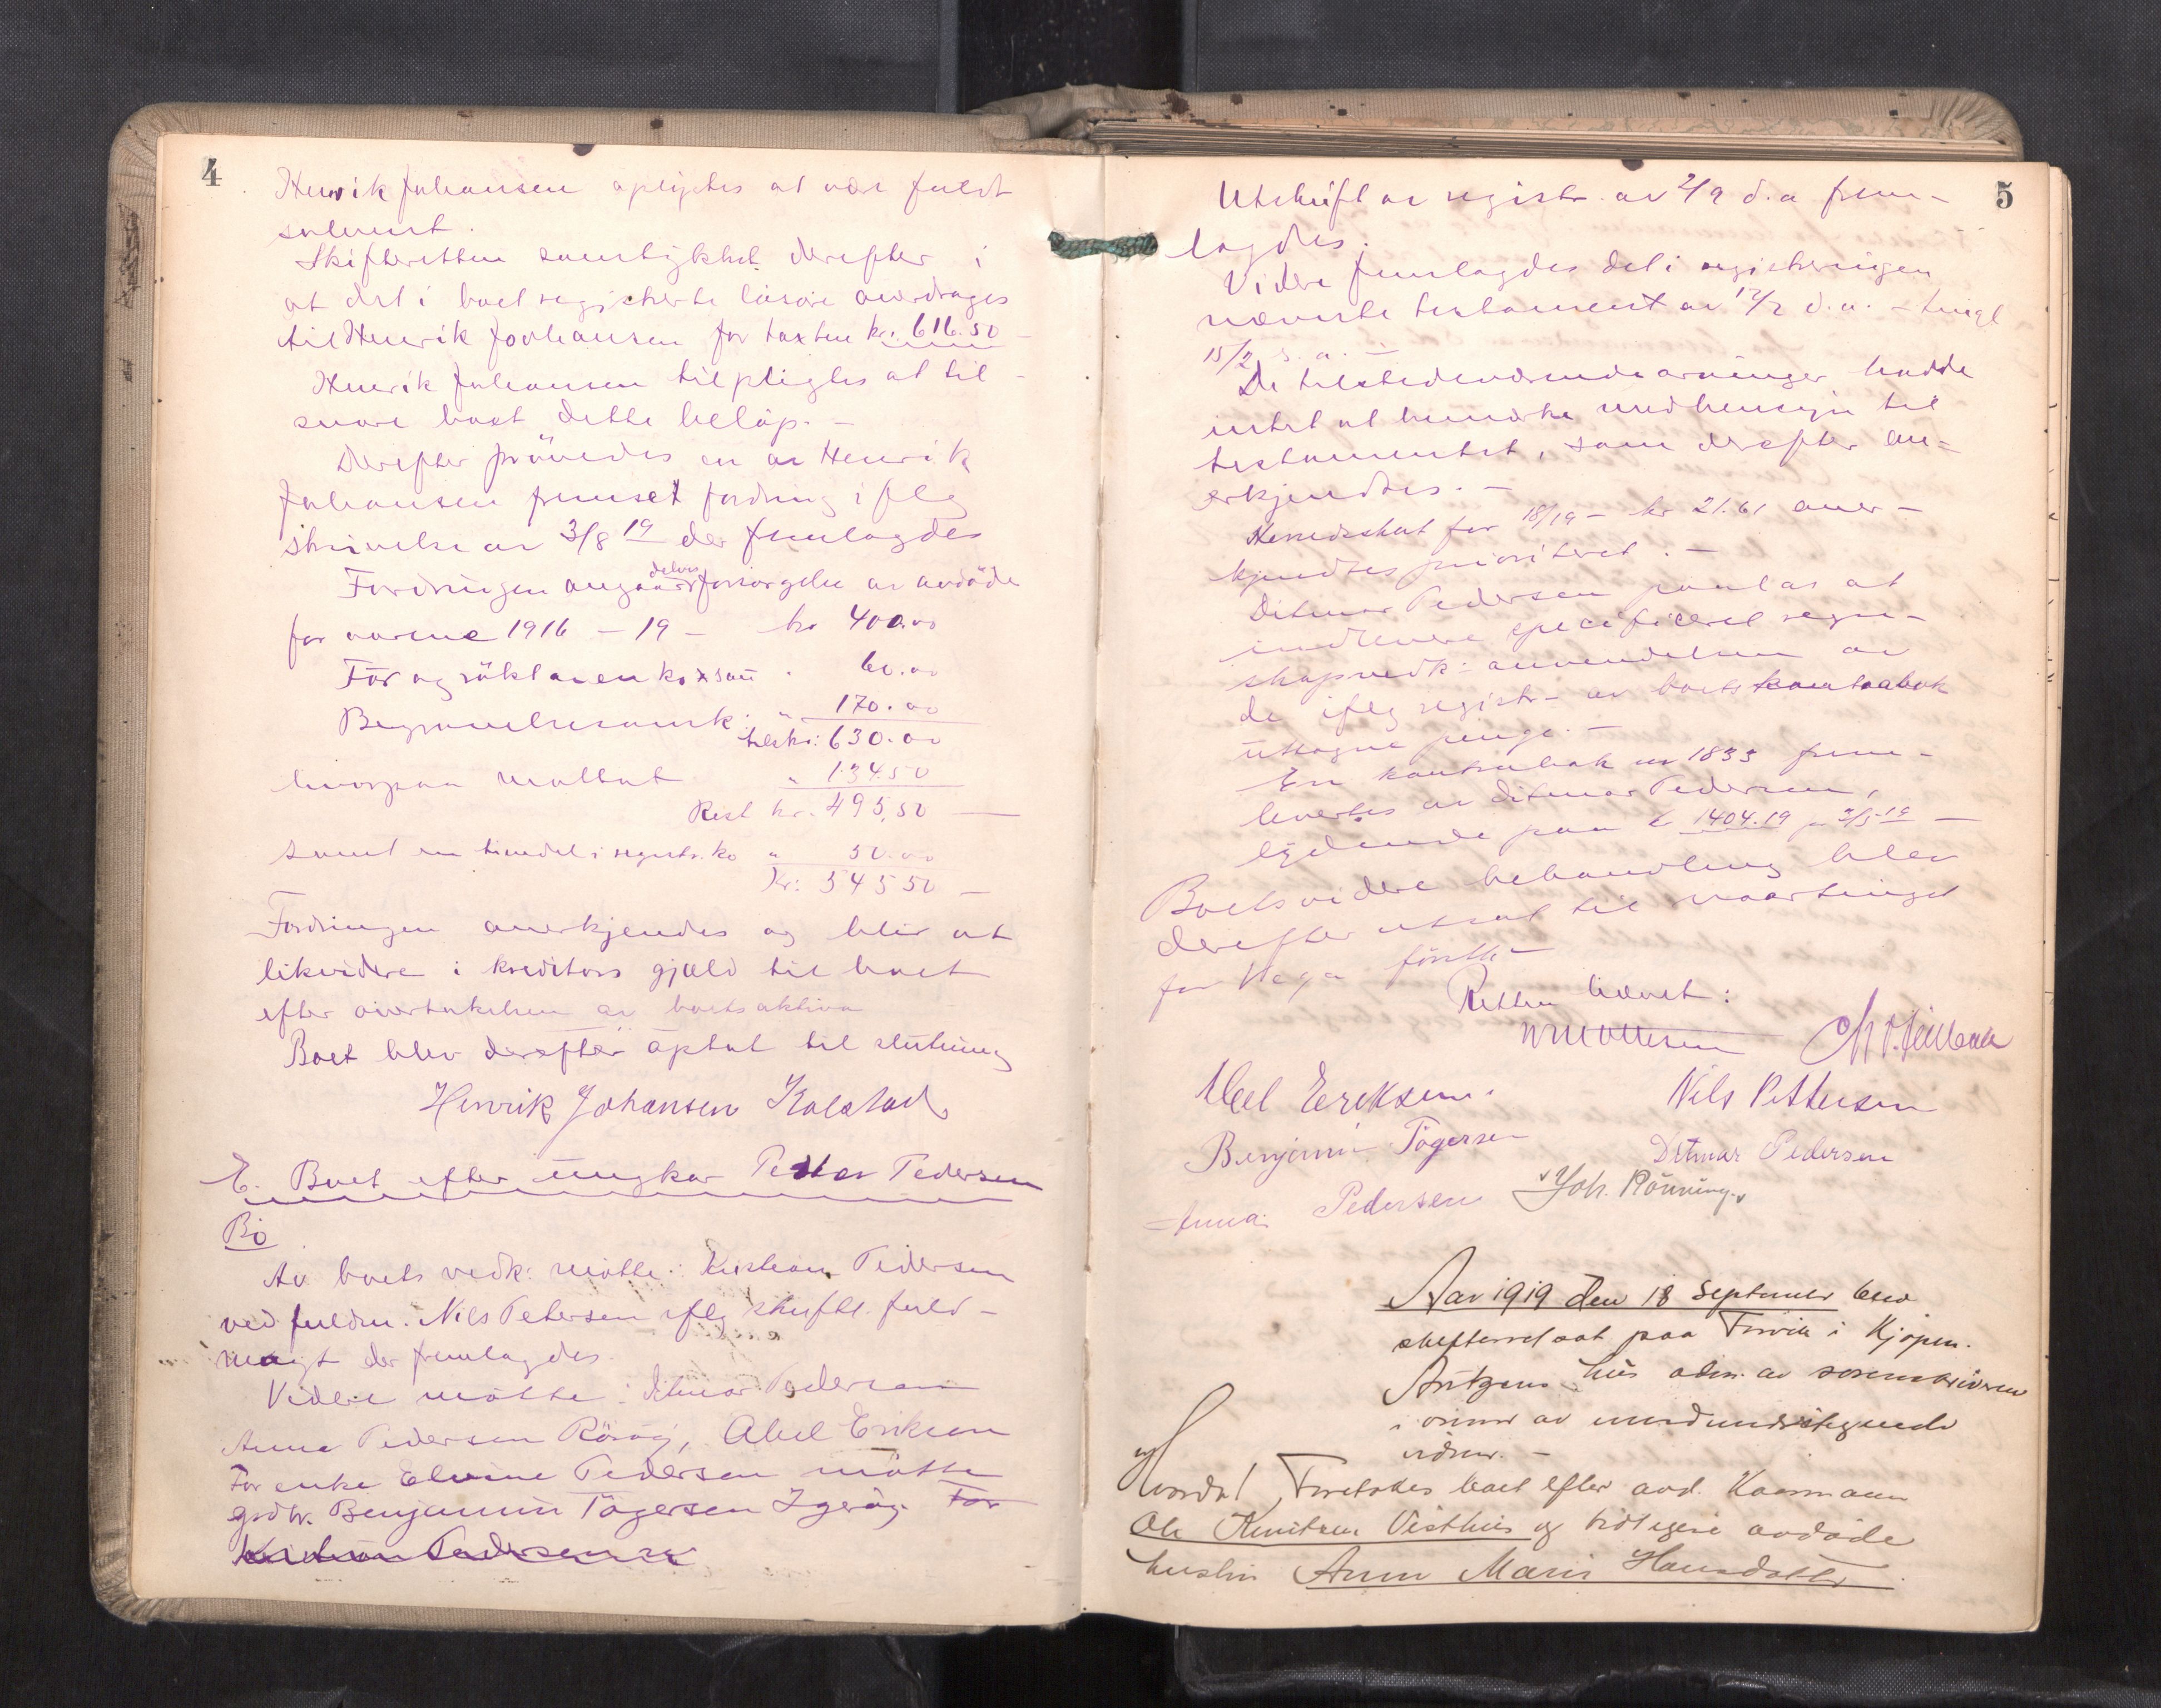 4
Henrik Johansen oplystes at være fuldt
solvent.
Skifteretten samtykket derefter i
at det i boet registrerte løsøre overdrages
til Henrik Joohansen for taxten kr. 616.50
Henrik Johansen tilpligtes at til-
svare boet dette beløp. -
Derefter prøvedes en av Henrik
Johansen fremsat fordring ifølg
skrivelse av 3/8 19 der fremlagdes
Fordringen angaar delvis forsørgelse av avdøde
for aarene 1916 - 19 - kr 400.00
För og røkt av en ko x sau " 60.00
Begravelsesomk. " 170.00
tils kr: 630.00
hvorpaa mottat " 134.50
Rest kr. 495,50
samt en tiendel i registr. ko " 50.00
Kr: 545 50 -
Fordringen anerkjendes og blir at
likvidere i kreditors gjæld til boet
efter overtakelsen av boets aktiva
Boet blev derefter optat til slutning
Henrik Johansen Kolstad
E. Boet efter ungkar Petter Pedersen
Bö
Av boets vedk: møtte: Kristian Pedersen
ved fuldm. Nils Petersen iflg skriftl. fuld-
magt der fremlagdes.
Videre møtte: Ditmar Pedersen
Anna Pedersen Rörøy, Abel Eriksen
For enke Elvine Pedersen møtte
grdbr. Benjamin Tøgersen Igerøy. For
Kristian Pedersen
5
Utskrift av registr. av 2/9 d.a frem-
lagdes.
Videre fremlagdes det i registreringen
nævnte testament av 12/2 d.a. - tingl
15/2 s.a. -
De tilstedeværende arvinger hadde
intet at bemærke med hensyn til
testamentet, som derefter an-
erkjendtes. -
Herredsskat for 18/19 - kr 21.61 aner-
kjendtes prioritert. -
Ditmar Pedersen paalas at
indlevere specificeret regn-
skap vedk: anvendelsen av
de iflg registr- av boets kontrabok
uttagne penge. -
En kontrabok nr 1833 frem-
levertes av Ditmar Pedersen,
lydende paa kr 1404.19 pr 2/5 19 -
Boets videre behandling blev
derefter utsat til vaartinget
for Vega förstk-
Retten hævet:
Abel Eriksen. Nils Pettersen
Benjamin Tøgersen Ditmar Pedersen
Anna Pedersen Joh. Rønning.
Aar 1919 den 18 September blev
skifteret sat paa Forvik i Kjøpm.
Antzens hus adm. av sorenskriveren
i overvær av medundertegnede
vidner. -
Hvorda! Foretokes boet efter avd. Kaarmann
Ole Knutsen Visthus og tidligere avdøde
hustru Anne Marie Hansdatter